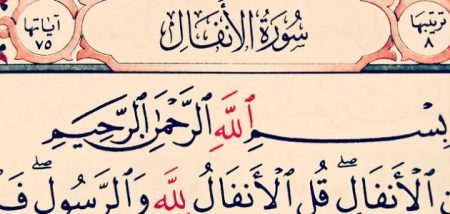 ترتيبها ٨ سُورَةُ الأَنفَالِ آياتها ٧٥
بِسْمِ اللَّهِ الرَّحْمَٰنِ الرَّحِيمِ
الْأَنفَالِ ۖ قُلِ الْأَنفَالُ لِلَّهِ وَالرَّسُولِ ۖ